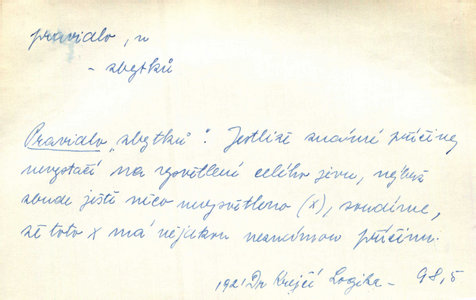 pravidlo, n
- zbytků
Pravidlo „zbytků". Jestliže známé příčiny
nevystačí na vysvětlení celého jevu, nýbrž
zbude ještě něco nevysvětleno (x), soudíme,
že toto x má nějakou neznámou příčinu.
1921 Dr Krejčí Logika - 98,5